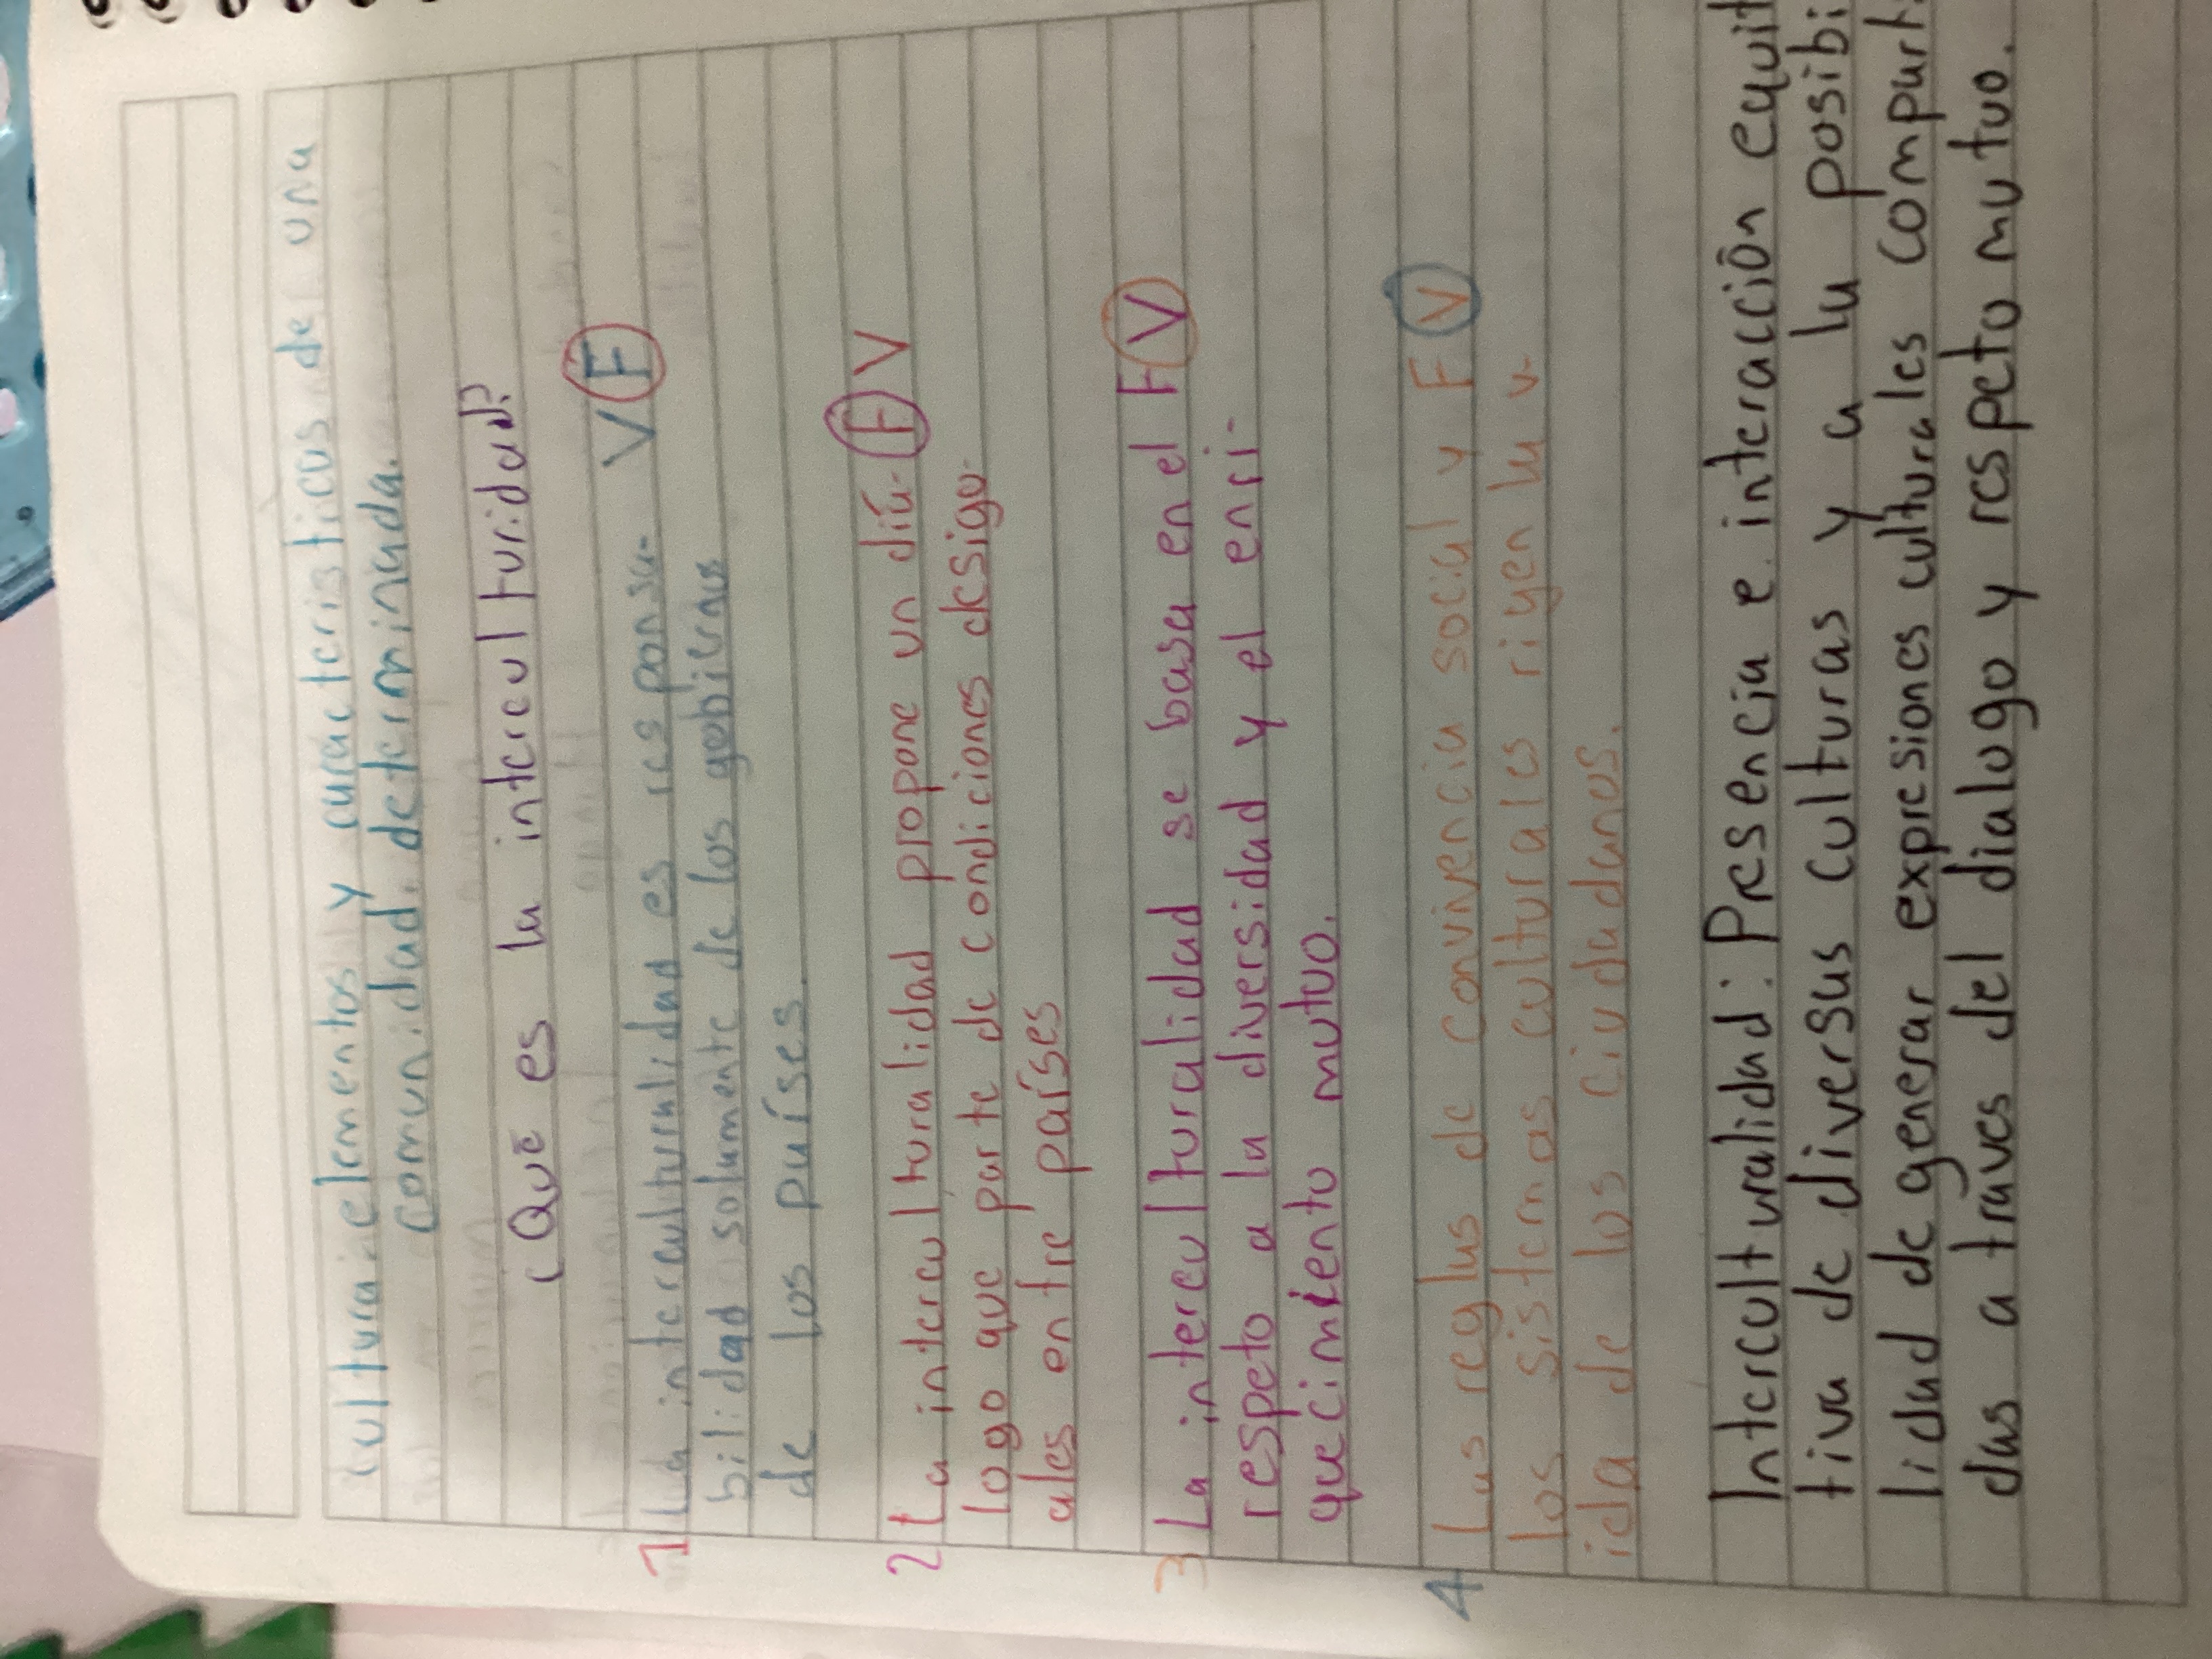 Cultura: elementos y caracteristicas de una
comunidad determinada.
¿Qué es la intercul turidad?
1 La interculturalidad es responsa- V F
bilidad solamente de los gobiernos
de los países.
2 La intercul turalidad propone un diá- F V
logo que parte de condiciones desigu-
ales entre países
3 La intercul turalidad se basa en el F V
respeto a la diversidad y el enri-
quecimiento mutuo.
4 Las reglas de convivencia social y F V
los sistemas culturales rigen la v-
ida de los ciudadanos.
Intercult uralidad: Presencia e interacción equit
tiva de diversas culturas y a la posibi
lidad de generar expresiones culturales comparti
das a tráves del dialogo y respeto mutuo.